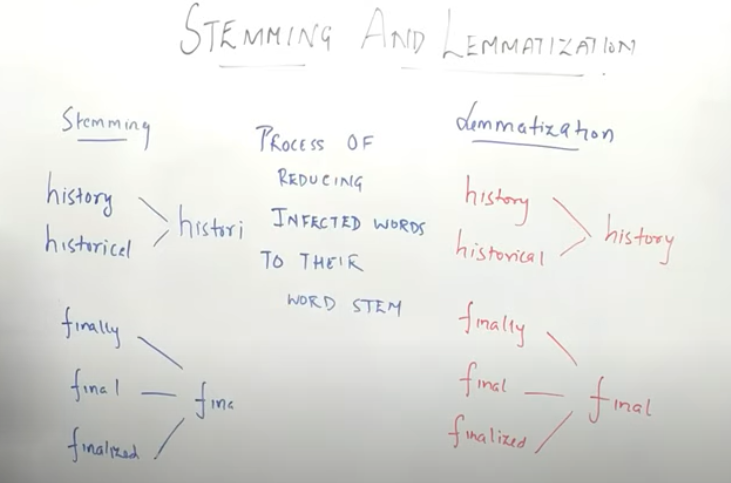 STEMMING AND LEMMATIZATION
Stemming
history
historicel
histori
finally
final
finalized
fina
PROCESS OF
REDUCING
INFECTED WORDS
TO THEIR
WORD STEM
Lemmatization
history
historical
history
finally
final
finalized
final